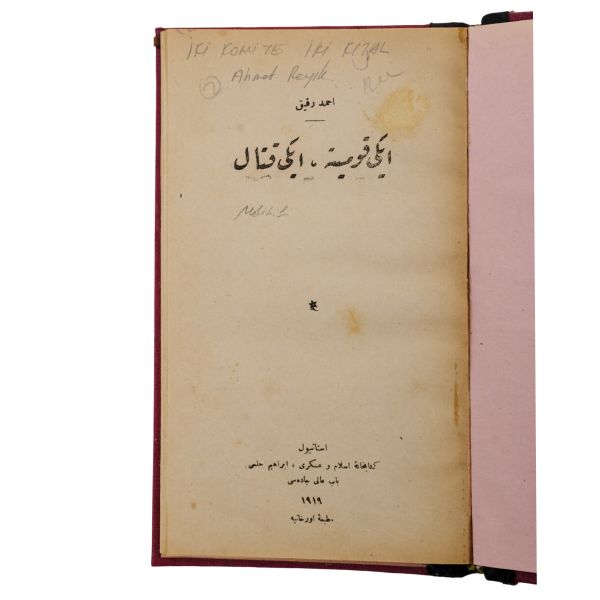 İKİ KOMİTE İKİ KITAL
2 Ahmet Refik
احمد رفيق
ايكى قوميته ، ايكى قتال
Melih. S
*
استانبول
كتابخانهٔ اسلام و عسكرى ، ابراهيم حلمى
باب عالى جاده‌سى
١٩١٩
مطبعهٔ اورخانيه